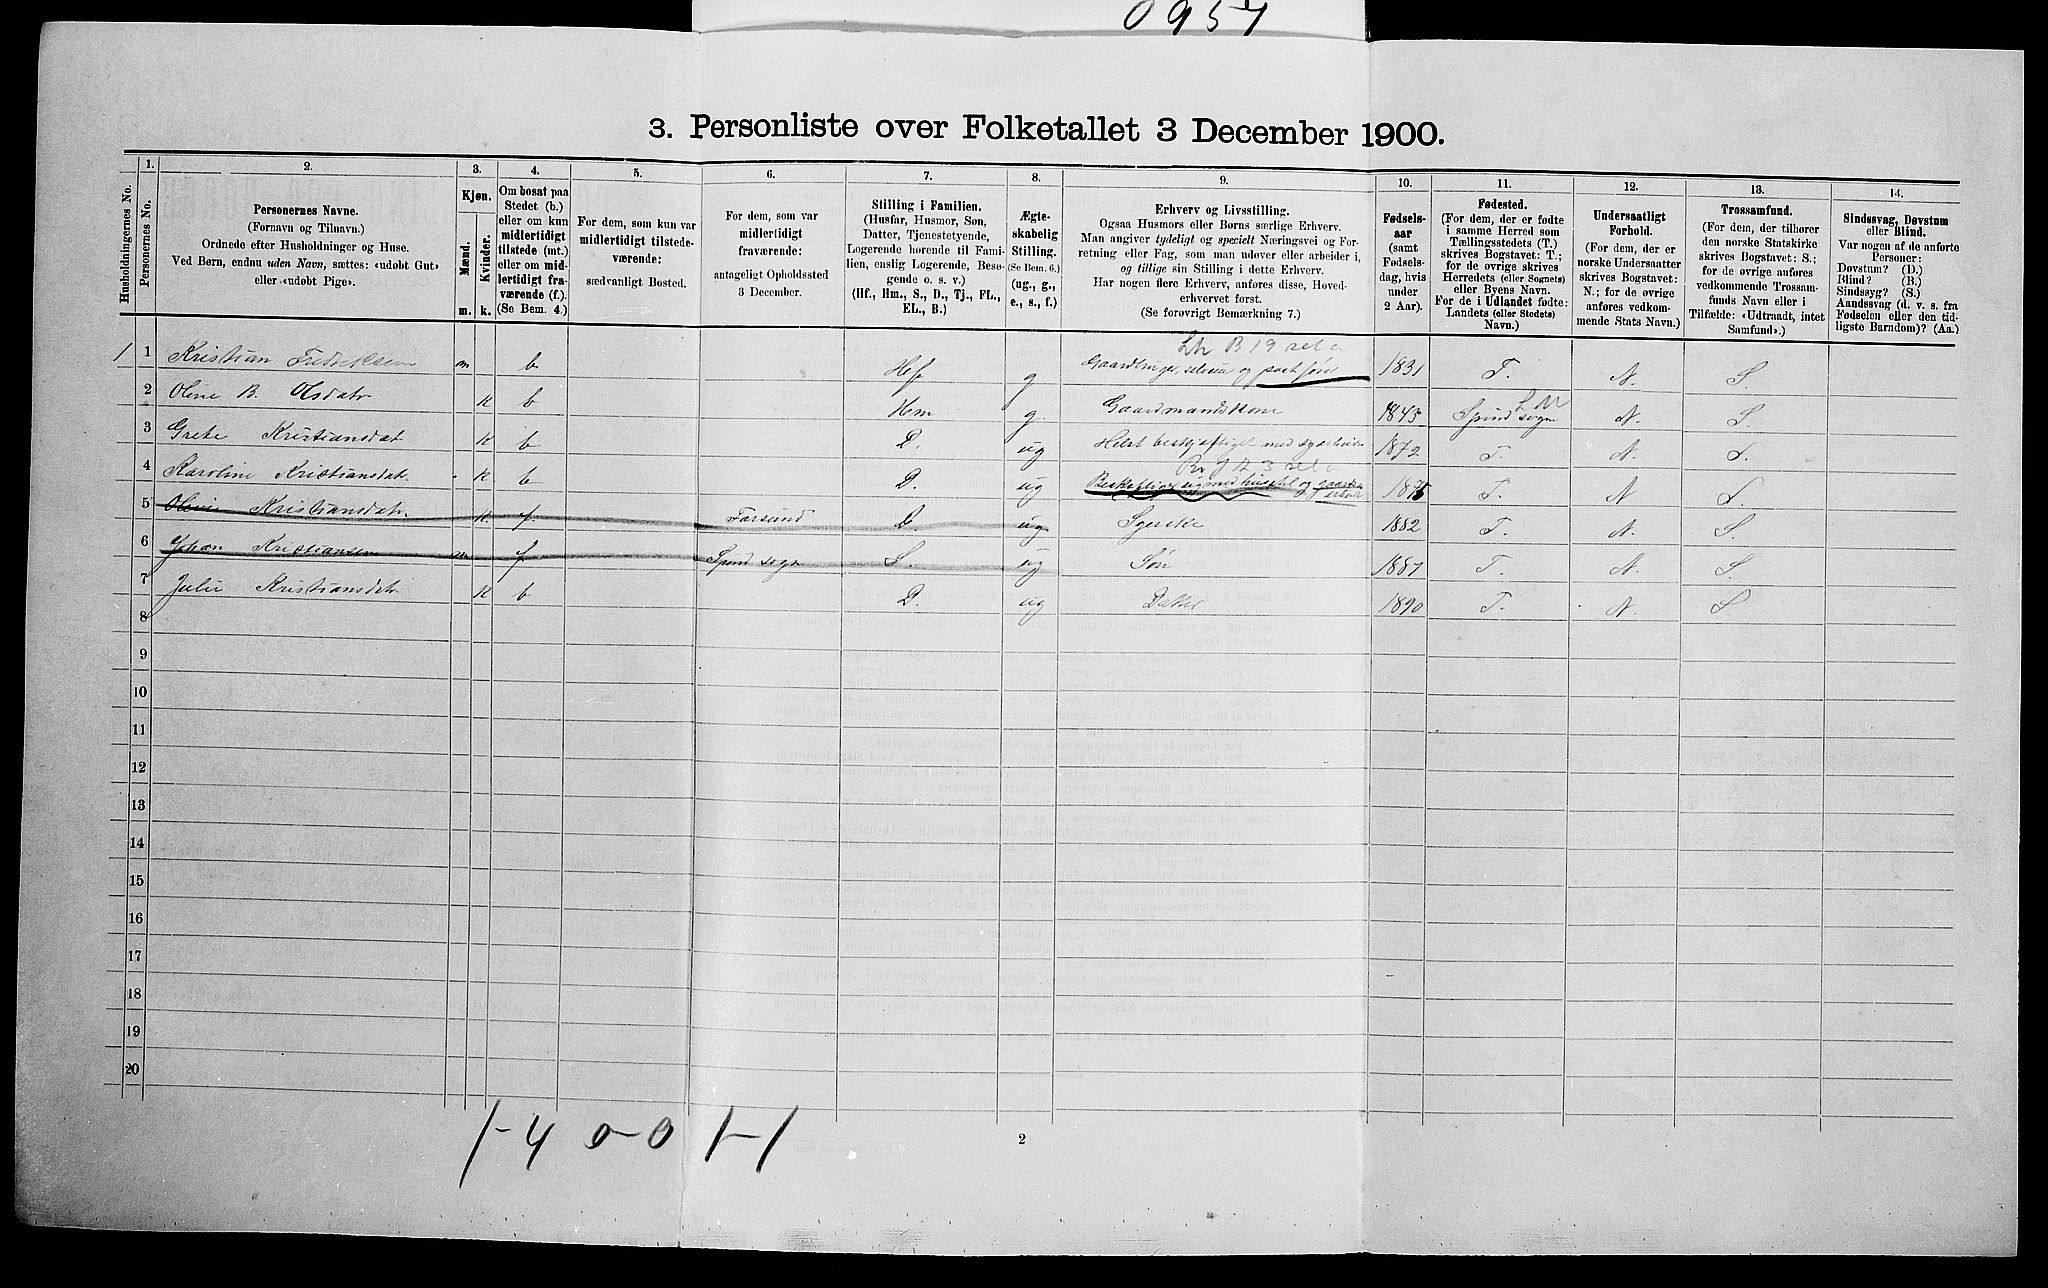 0957
3. Personliste over Folketallet 3 December 1900.
Husholdningernes No.
1.
Personernes No.
2.
Personernes Navne.
(Fornavn og Tilnavn.)
Ordnede efter Husholdninger og Huse.
Ved Børn, endnu uden Navn, sættes: «udøbt Gut»
eller «udøbt Pige».
3.
Kjøn.
Mænd.
Kvinder.
m. k.
4.
Om bosat paa
Stedet (b.)
eller om kun
midlertidigt
tilstede (mt.)
eller om mid-
lertidigt fra-
værende (f.)
(Se Bem. 4.)
5.
For dem, som kun var
midlertidigt tilstede-
værende:
sædvanligt Bosted.
6.
For dem, som var
midlertidigt
fraværende:
antageligt Opholdssted
3 December.
7.
Stilling i Familien.
(Husfar, Husmor, Søn,
Datter, Tjenestetyende,
Logerende hørende til Fami-
lien, enslig Logerende, Besø-
gende o. s. v.)
(Hf., Hm., S., D., Tj., FL.,
EL., B.)
8.
Ægte-
skabelig
Stilling.
(Se Bem. 6.)
(ug., g.,
e., s., f.)
9.
Erhverv og Livsstilling.
Ogsaa Husmors eller Børns særlige Erhverv.
Man angiver tydeligt og specielt Næringsvei og For-
retning eller Fag, som man udøver eller arbeider i,
og tillige sin Stilling i dette Erhverv.
Har nogen flere Erhverv, anføres disse, Hoved-
erhvervet først.
(Se forøvrigt Bemærkning 7.)
10.
Fødsels-
aar
(samt
Fødsels-
dag, hvis
under
2 Aar).
11.
Fødested.
(For dem, der er fødte
i samme Herred som
Tællingsstedets (T.)
skrives Bogstavet: T.;
for de øvrige skrives
Herredets (eller Sognets)
eller Byens Navn.
For de i Udlandet fødte:
Landets (eller Stedets)
Navn.)
12.
Undersaatligt
Forhold.
(For dem, der er
norske Undersaatter
skrives Bogstavet:
N.; for de øvrige
anføres vedkom-
mende Stats Navn.)
13.
Trossamfund.
(For dem, der tilhører
den norske Statskirke
skrives Bogstavet: S.;
for de øvrige anføres
vedkommende Trossam-
funds Navn eller i
Tilfælde: «Udtraadt, intet
Samfund».)
14.
Sindssvag, Døvstum
eller Blind.
Var nogen af de anførte
Personer:
Døvstum? (D.)
Blind? (B.)
Sindssyg? (S.)
Aandssvag (d. v. s. fra
Fødselen eller den tid-
ligste Barndom)? (Aa.)
1 1 Kristian Fredriksen m b Hf g Gaardbruger, selveier og 1831 T. N. S.
2 Olene B. Olsdatr k b Hm g. Gaardmandskone 1845 Spind sogn N. S.
3 Grete Kristiansdat k b D. ug Helst beskjæftiget med 1872 T. N. S.
4 Karoline Kristiansdatr k b D. ug med husstel og gaards arbeide T. N S.
5 Kristiansdatr k f. Farsund D. ug Syerske 1882 T. N. S.
6 Johan Kristiansen m f. Spind sogn S. ug Søn 1887 T. N. S.
7 Julie Kristiansdatr k b D. ug Datter 1890 T. N. S
8
9
10
11
12
13
14
15
16
17
18
19
20
1-4 0-0 1-1
2